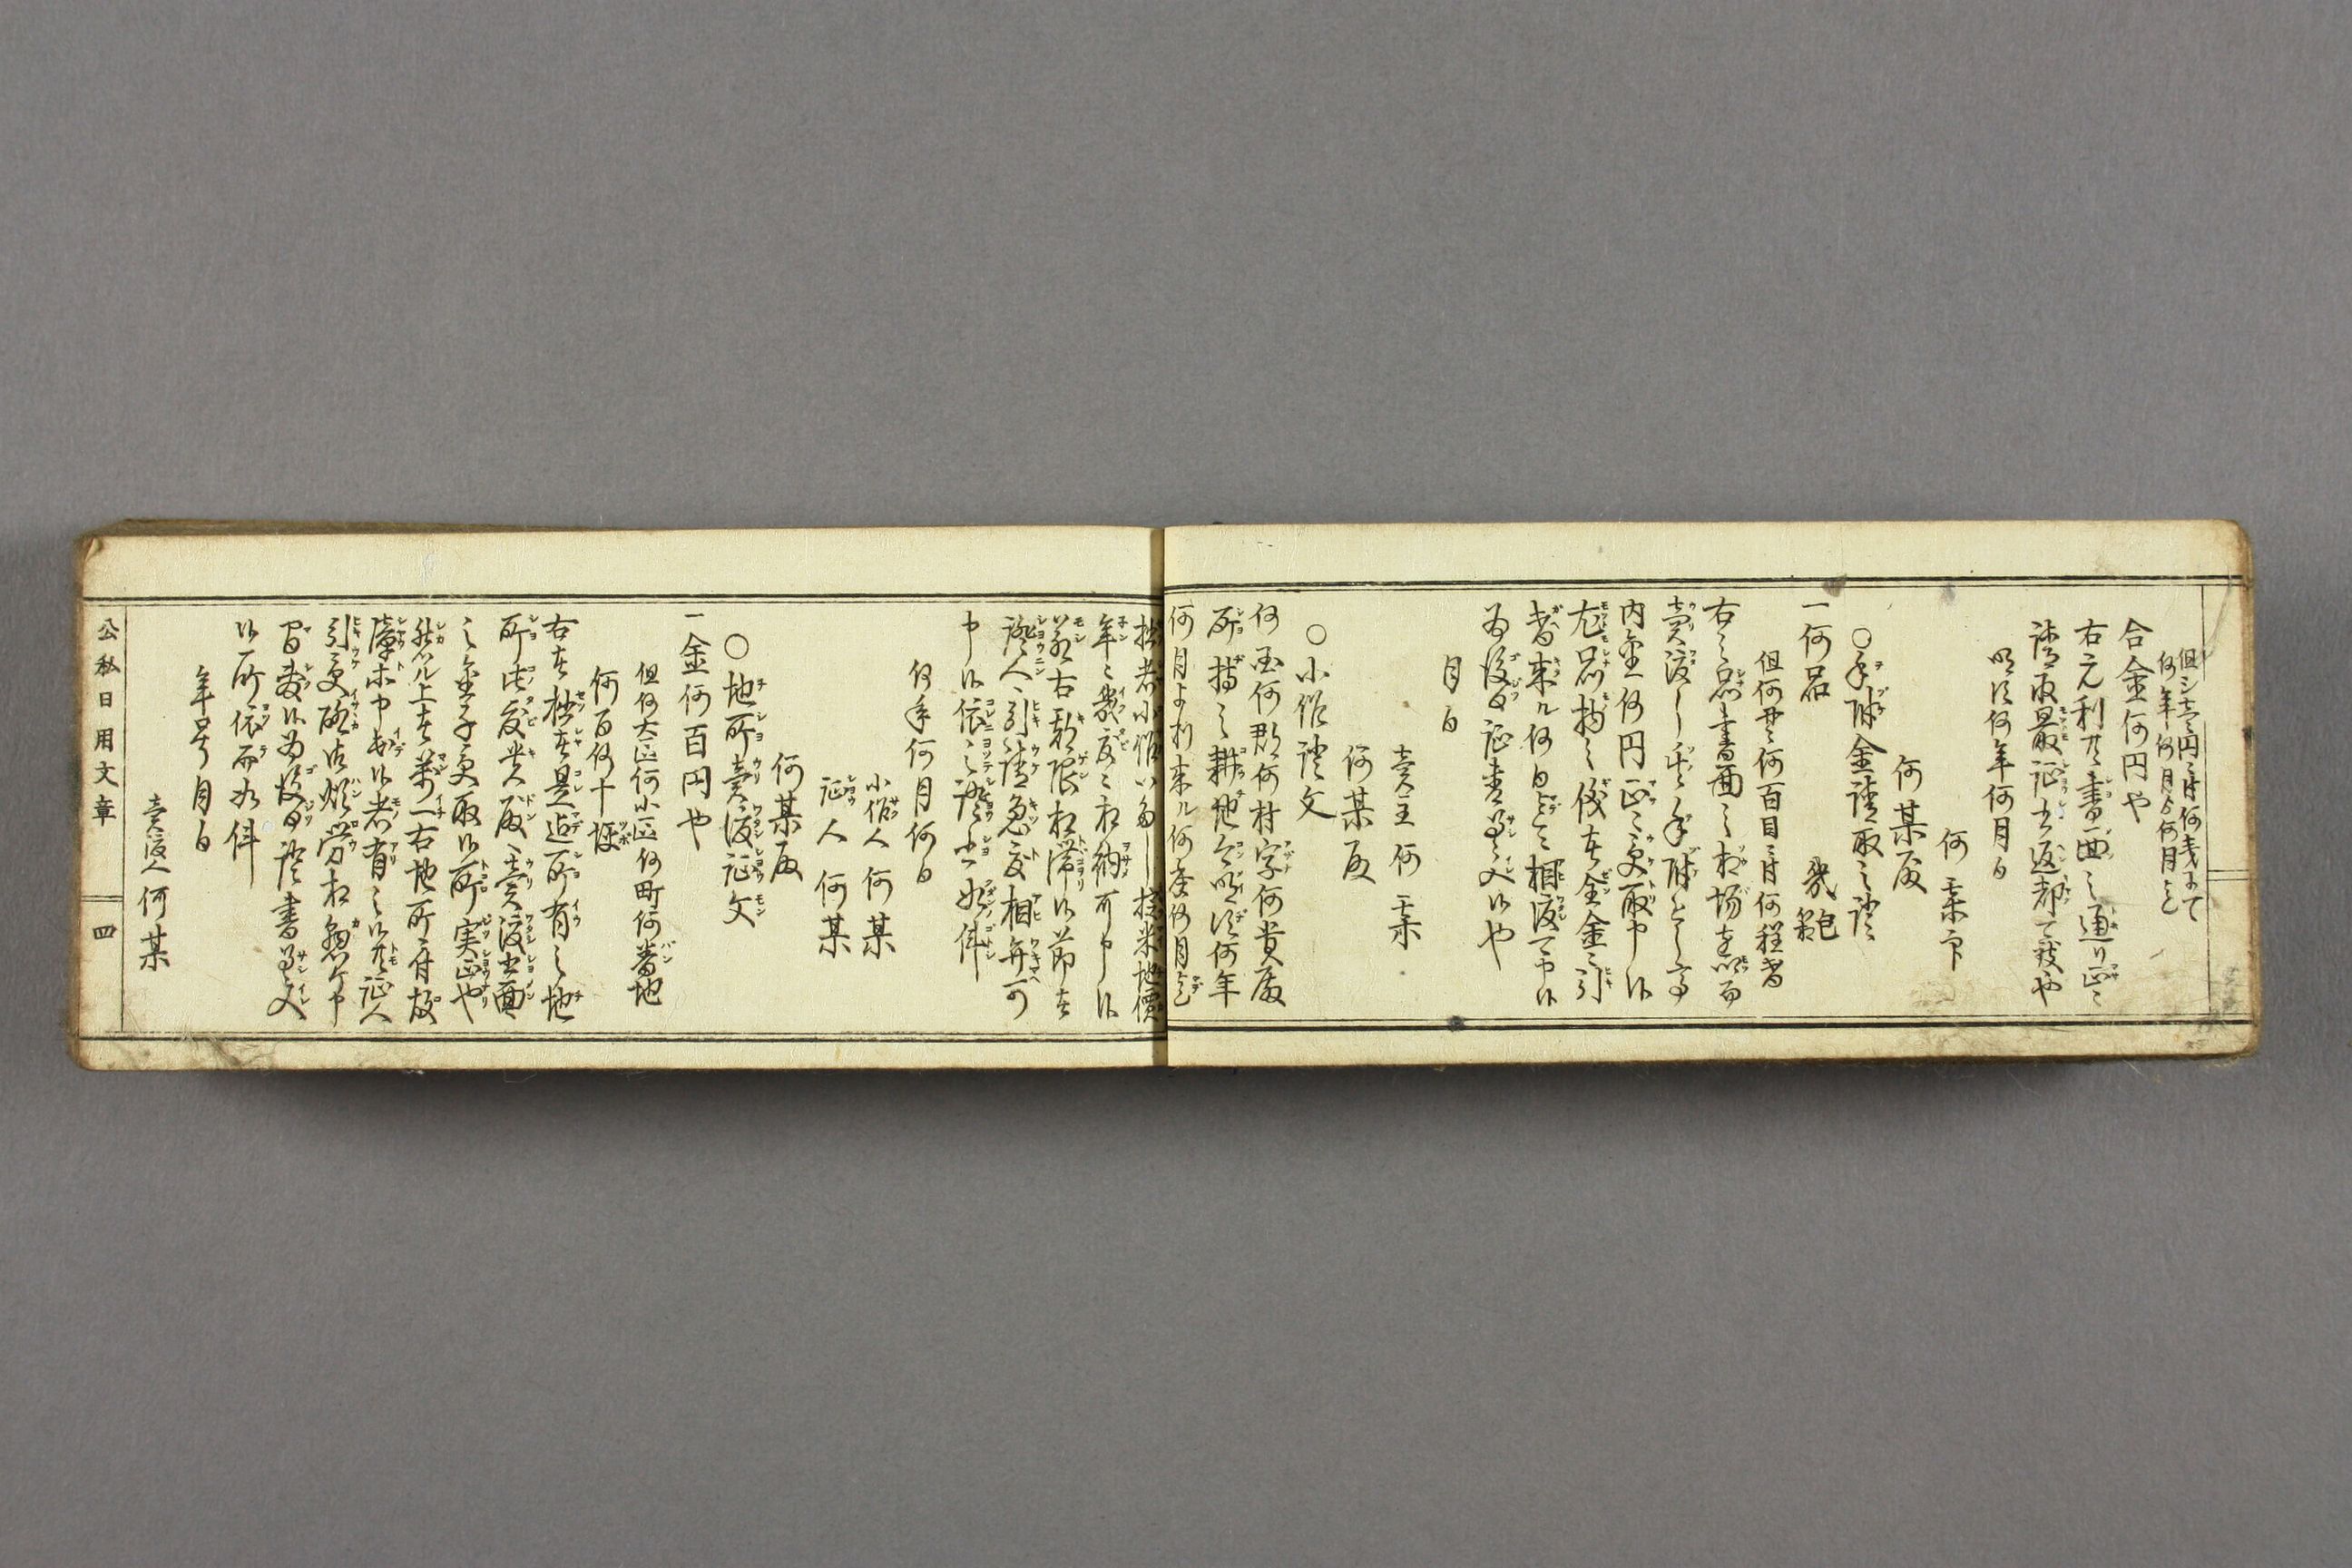 但シ壱円ニ付何銭ニて
何年何月ゟ何月迄
合金何円也
右元利共書面之通り正ニ
請取最証书返却可致也
明治何年何月日
何某印
何某殿
○手附金請取之證
一何品 幾箱
但何番何百目ニ付何程替
右之品書面之相場を以而
売渡し手附として
内金何円正ニ受取申候
尤品物之儀者金引
替来ル何日迄ニ相渡可申候
為後日証書差入候也
月日
売主 何某
何某殿
○小作證文
何国何郡何村字何貴殿
所持之耕地今般明治何年
何月より来ル何年何月迄
拙者小作いたし候米地價
年ニ幾度ニ相納可申候
若右期限相滞候節者
證人ニ引請急度相弁可
申候依之證书如件
何年何月何日
小作人 何某
証人 何某
何某殿
○地所売渡証文
一金何百円也
但何大区何小区何町何番地
何百何十坪
右者拙者是迄所有之地
所此度貴殿ニ売渡书面
之金子受取候所実正也
然ル上者万一右地所ニ付故
障等申出候者有之候共証人
引受聊御煩労相懸ケ申
間敷候為後日證書差入
候所依而如件
年号月日
売渡人 何某
公私日用文章
四